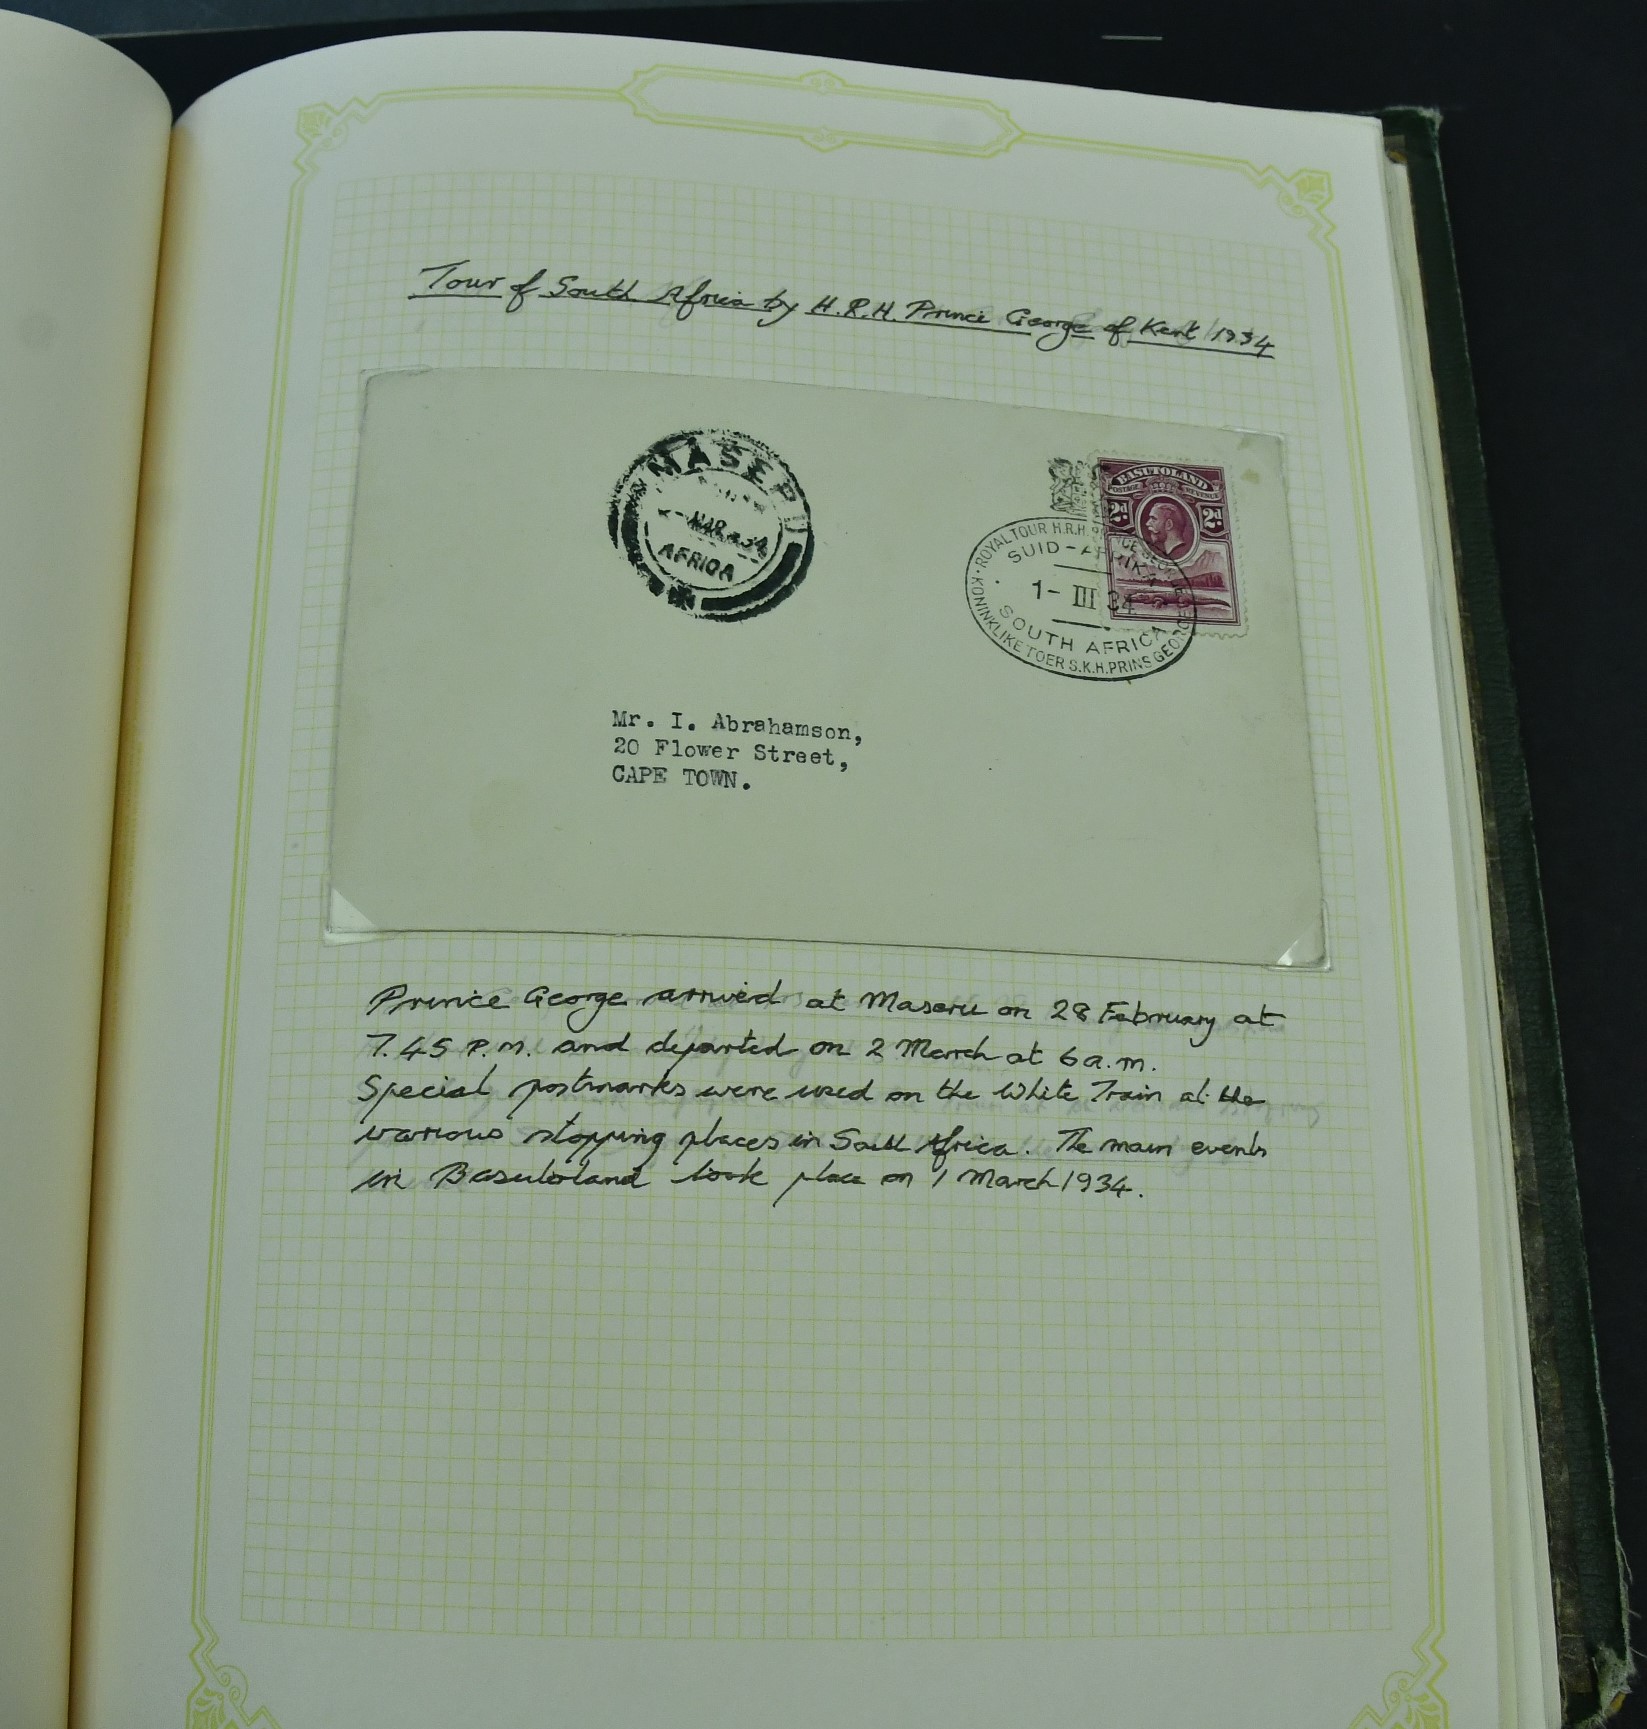 Tour of South Africa by H.R.H. Prince George of Kent 1934
MASERU
MAR 34
AFRICA
BASUTOLAND
POSTAGE REVENUE
2d 2d
ROYAL TOUR H.R.H. PRINCE GEORGE
SUID-AFRIKA
1-III 34
SOUTH AFRICA
KONINKLIKE TOER S.K.H. PRINS GEORGE
Mr. I. Abrahamson,
20 Flower Street,
CAPE TOWN.
Prince George arrived at Maseru on 28 February at
7.45 P.M. and departed on 2 March at 6 a.m.
Special postmarks were used on the White Train at the
various stopping places in South Africa. The main events
in Basutoland took place on 1 March 1934.